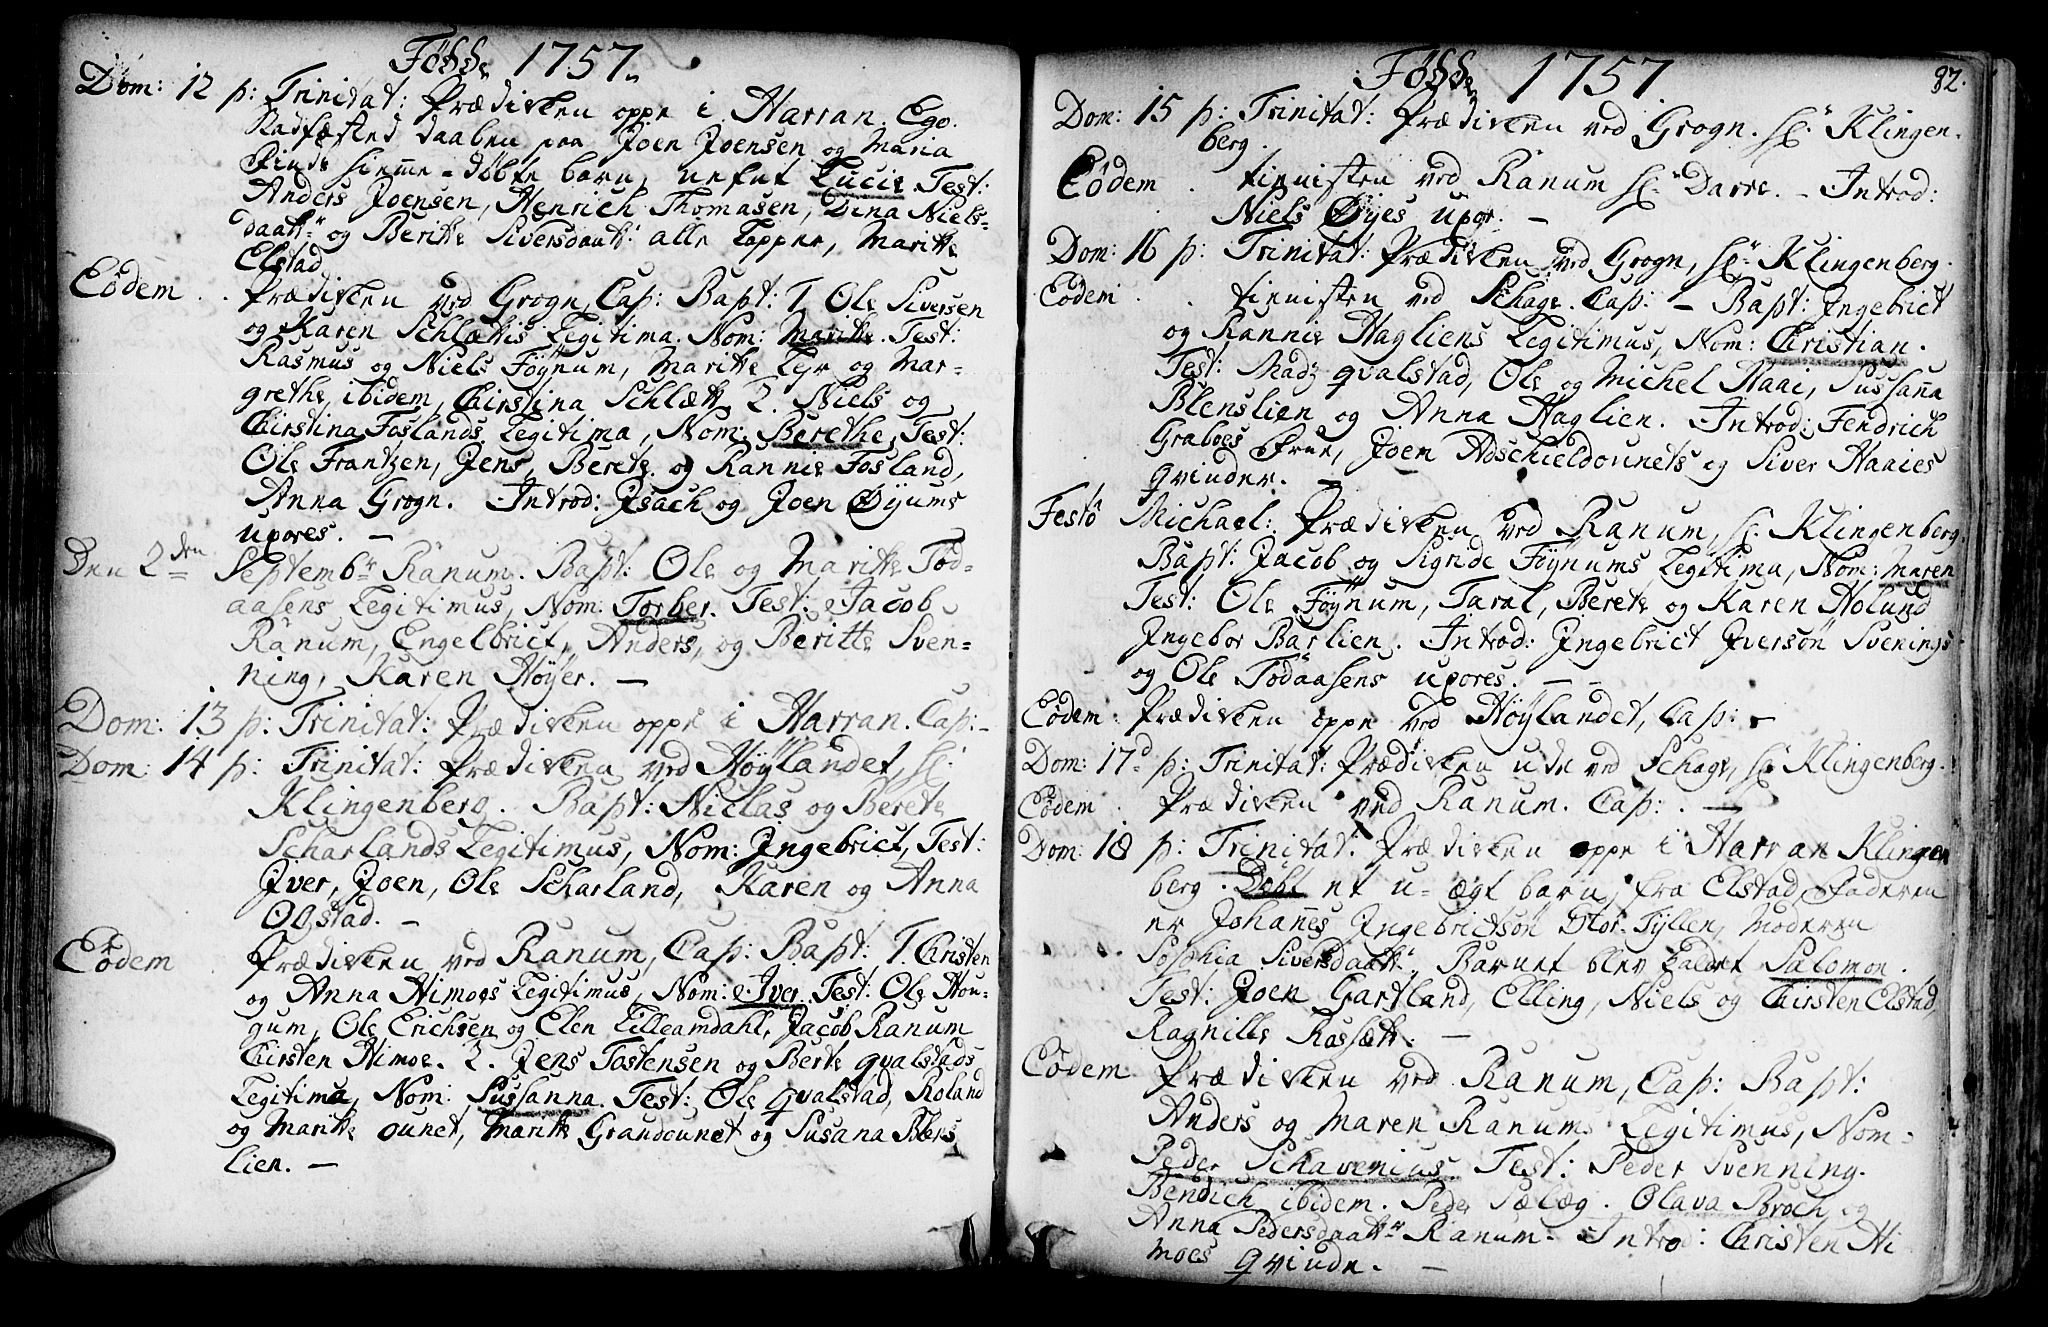 Fødde 1757.
Dom: 12 p: Trinitat: Prædiken oppe i Harran. Ego.
Stadfæsted daaben paa Joen Joensen og Maria
hiemme-døbte barn, Lucie Test:
Anders Joensen, Henrich Thomasen, Dina Niels-
daatt: og Beritte Siversdaatt: alle Lapper, Maritte
Elstad
Eôdem . . Prædiken ved Grogn, Cap: Bapt: 1. Ole Siversen
og Karen Schlættis Legitima. Nom: Maritte. Test:
Rasmus og Niels Føÿnum, Maritte Lyr og Mar-
grethe ibidem, Chirstina Schlætt 2. Niels og
Chirstina Foslands Legitima, Nom: Berethe, Test:
Ole Frantzen, Jens, Berete og Rannie Fosland,
Anna Grogn. Introd: Jsach og Joen Øÿums
uxores. –
Den 2den Septembr Ranum. Bapt: Ole og Maritte Tød-
aasens Legitimus, Nom: Torber. Test: Jacob
Ranum, Engelbrict, Anders, og Beritte Sven-
ning, Karen Høÿer. –
Dom: 13 p: Trinitat: Prædiken oppe i Harran. Cap: –
Dom: 14 p: Trinitat: Prædiken ved Høÿlandet, hr
Klingenberg. Bapt: Niclas og Berete
Scharlands Legitimus, Nom: Jngebrict, Test:
Jver, Joen, Ole Scharland, Karen og Anna
Ogstad. –
Eôdem Prædiken ved Ranum, Cap: Bapt: 1. Christen
og Anna Himoes Legitimus, Nom: Jver. Test: Ole Hou-
gum, Ole Erichsen og Elen Lilleamdahl, Jacob Ranum
Chirsten Himoe. 2. Jens Tostensen og Berte qvalstads
Legitima, Nom: Sussanna. Test: Ole qvalstad, Roland
og Maritte ounet, Maritte Graudounet og Susana Blens
lien. –
Fødde 1757
82.
Dom: 15 p: Trinitat: Prædiken ved Grogn. hr Klingen-
berg.
Eôdem . tienisten ved Ranum hr Darre. – Introd:
Niels Øÿes uxor. –
Dom: 16 p: Trinitat: Prædiken ved Grogn, hr Klingenberg.
Eôdem . . tienisten ved Schage. Cap: – Bapt: Jngebrict
og Rannie Hagliens Legitimus, Nom: Christian.
Test: Madz qvalstad, Ole og Michel Haai, Sussana
Blenslien og Anna Haglien. Introd: Fendrich
Graboes Frue, Joen Adschieldounets og Siver Haaies
qvinder. –
Festô Michael: Prædiken ved Ranum, hr Klingenberg.
Bapt: Jacob og Sigride Føÿnums Legitima, Nom: Maren
Test: Ole Føÿnum, Taral, Berete og Karen Holund
Jngebor Barlien. Introd: Jngebrict Jversøn Svenings
og Ole Tødaasens uxores. – –
Eôdem: Prædiken oppe ved Høÿlandet, Cap: –
Dom: 17d p: Trinitat: Prædiken ude ved Schage, hr Klingenberg.
Eôdem . Prædiken ved Ranum. Cap: . –
Dom: 18 p: Trinitat. Prædiken oppe i Harran Klingen
berg. Døbt et u-ægt barn, fra Elstad, Faderen
er Johannes Jngebrictsøn Stor-Fyllen, Moderen
Sophia Siversdaatt: Barnet blev kaldet Salomon.
Test: Joen Gartland, Elling, Niels og Chirsten Elstad,
Ragnille Rossætt. –
Eôdem Prædiken ved Ranum, Cap: Bapt:
Anders og Maren Ranums Legitimus, Nom-
Peder Schavenius. Test: Peder Svenning.
Bendich ibidem. Peder Sælæg. Olava Broch og
Anna Pedersdaattr Ranum. Introd: Christen Hi
moes qvinde. –